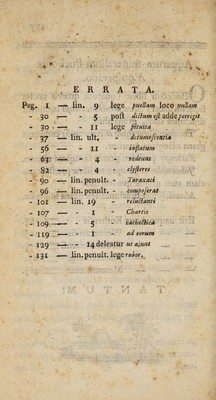 ERRATA.
Pag. 1 — lin. 9 lege puellam loco nullam
- 30 — - 5 post dictum est adde porrigit
- 30 — - 11 lege pituita
- 37 — lin. ult. - detumescentia
- 56 — - 11 - inflatum
- 63 — - 4 - redeuns
- 82 — - 4 - clysteres
- 90 — lin. penult. - Taraxaci
- 96 — lin. penult. - composerat
- 101 — lin. 19 - reluctanti
- 107 — - 1 - Chartis
- 109 — - 5 - cathectica
- 119 — - 1 - ad verum
- 129 — - 14 deleatur ut ajunt
- 131 — lin. penult. lege rubor.